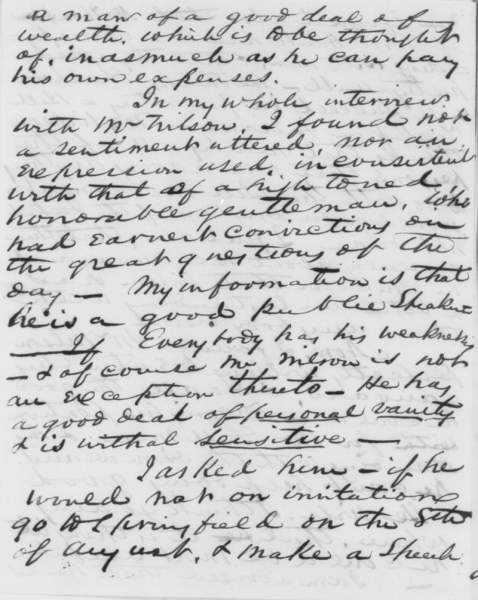 a man of a good deal of
wealth. which is to be thought
of, inasmuch as he can pay
his own expenses.
In my whole interview
with Mr Wilson, I found not
a sentiment uttered, nor an
expression used, inconsistent
with that of a high toned,
honorable gentleman, who
had earnest convictions on
the great questions of the
day — My information is that
he is a good public Speaker
— If Everybody has his weakness
— & of course Mr Wilson is not
an Exception thereto — He has
a good deal of personal vanity
& is withal Sensitive —
I asked him — if he
would not on invitation
go to Springfield on the 8th
of August, & make a Speech